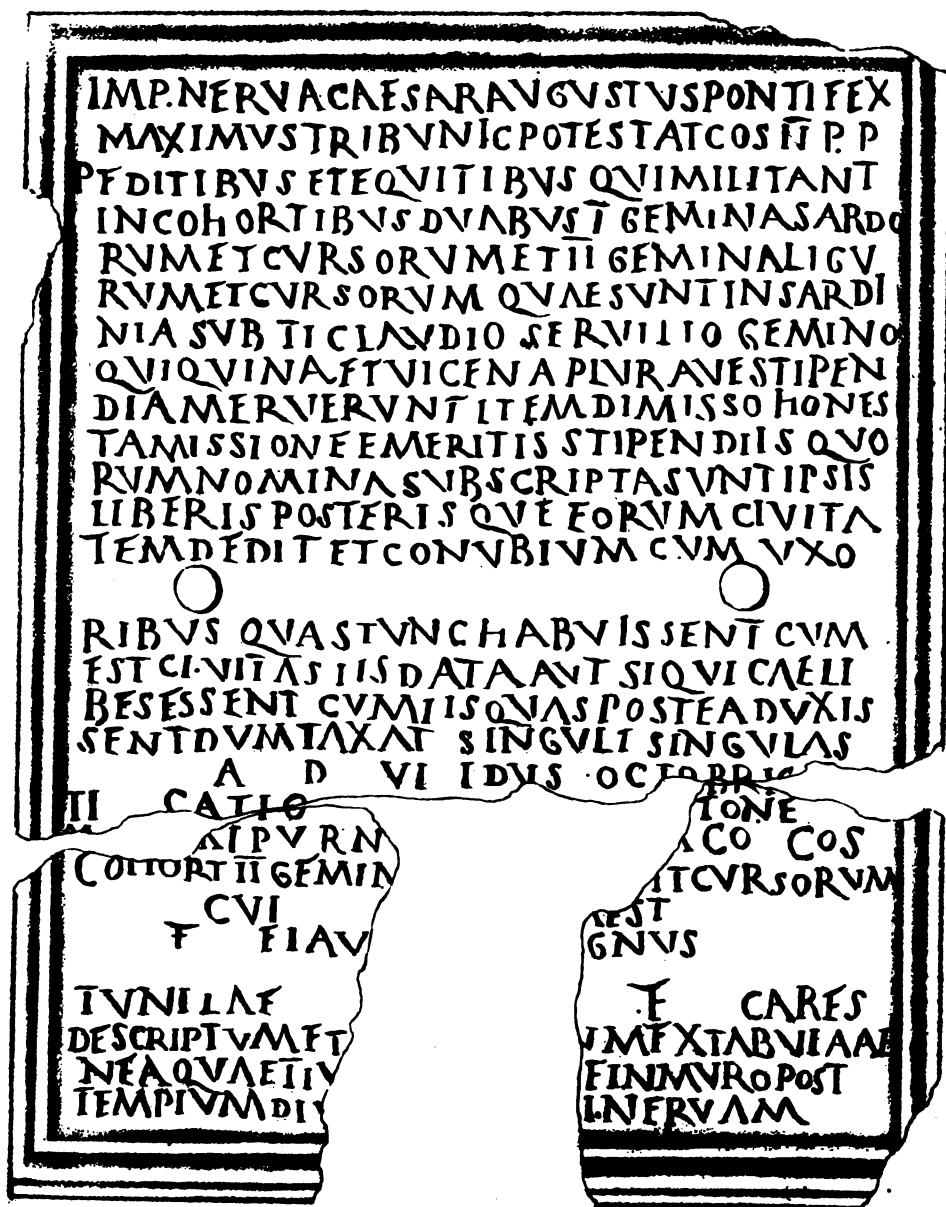 IMP.NERVACAESARAVGVSTVSPONTIFEX
MAXIMVSTRIBVNICPOTESTATCOSII P. P
PEDITIBVSETEQVITIBVS QVIMILITANT
INCOHORTIBVSDVABVSI GEMINASARDO
RVMETCVRSORVMETII GEMINALIGV
RVMETCVRSORVM QVAESVNTINSARDI
NIA SVB TI CLAVDIO SERVILIO GEMINO
QVIQVINAETVICENAPLVRAVESTIPEN
DIAMERVERVNTITEMDIMISSOHONES
TAMISSIONEEMERITIS STIPENDIIS QVO
RVMNOMINASVBSCRIPTASVNTIPSIS
LIBERIS POSTERIS QVE EORVM CIVITA
TEMDEDITETCONVBIVM CVM VXO
RIBVS QVASTVNCHABVISSENT CVM
EST CI.VITAS IIS DATAAVT SIQVICAELI
BESESSENT CVMIISQVASPOSTEADVXIS
SENTDVMTAXAT SINGVLI SINGVLAS
A D VI IDVS OCTOBRIS
TI CATIO TONE
IPVRN CO COS
COHORT II GEMIN TCVRSORVM
CVI EST
F FIAV GNVS
TVNILAE F CARES
DESCRIPTVMET MEXTABVIAAE
NEAQVAETIV EINMVROPOST
TEMPIVMDIV NERVAM